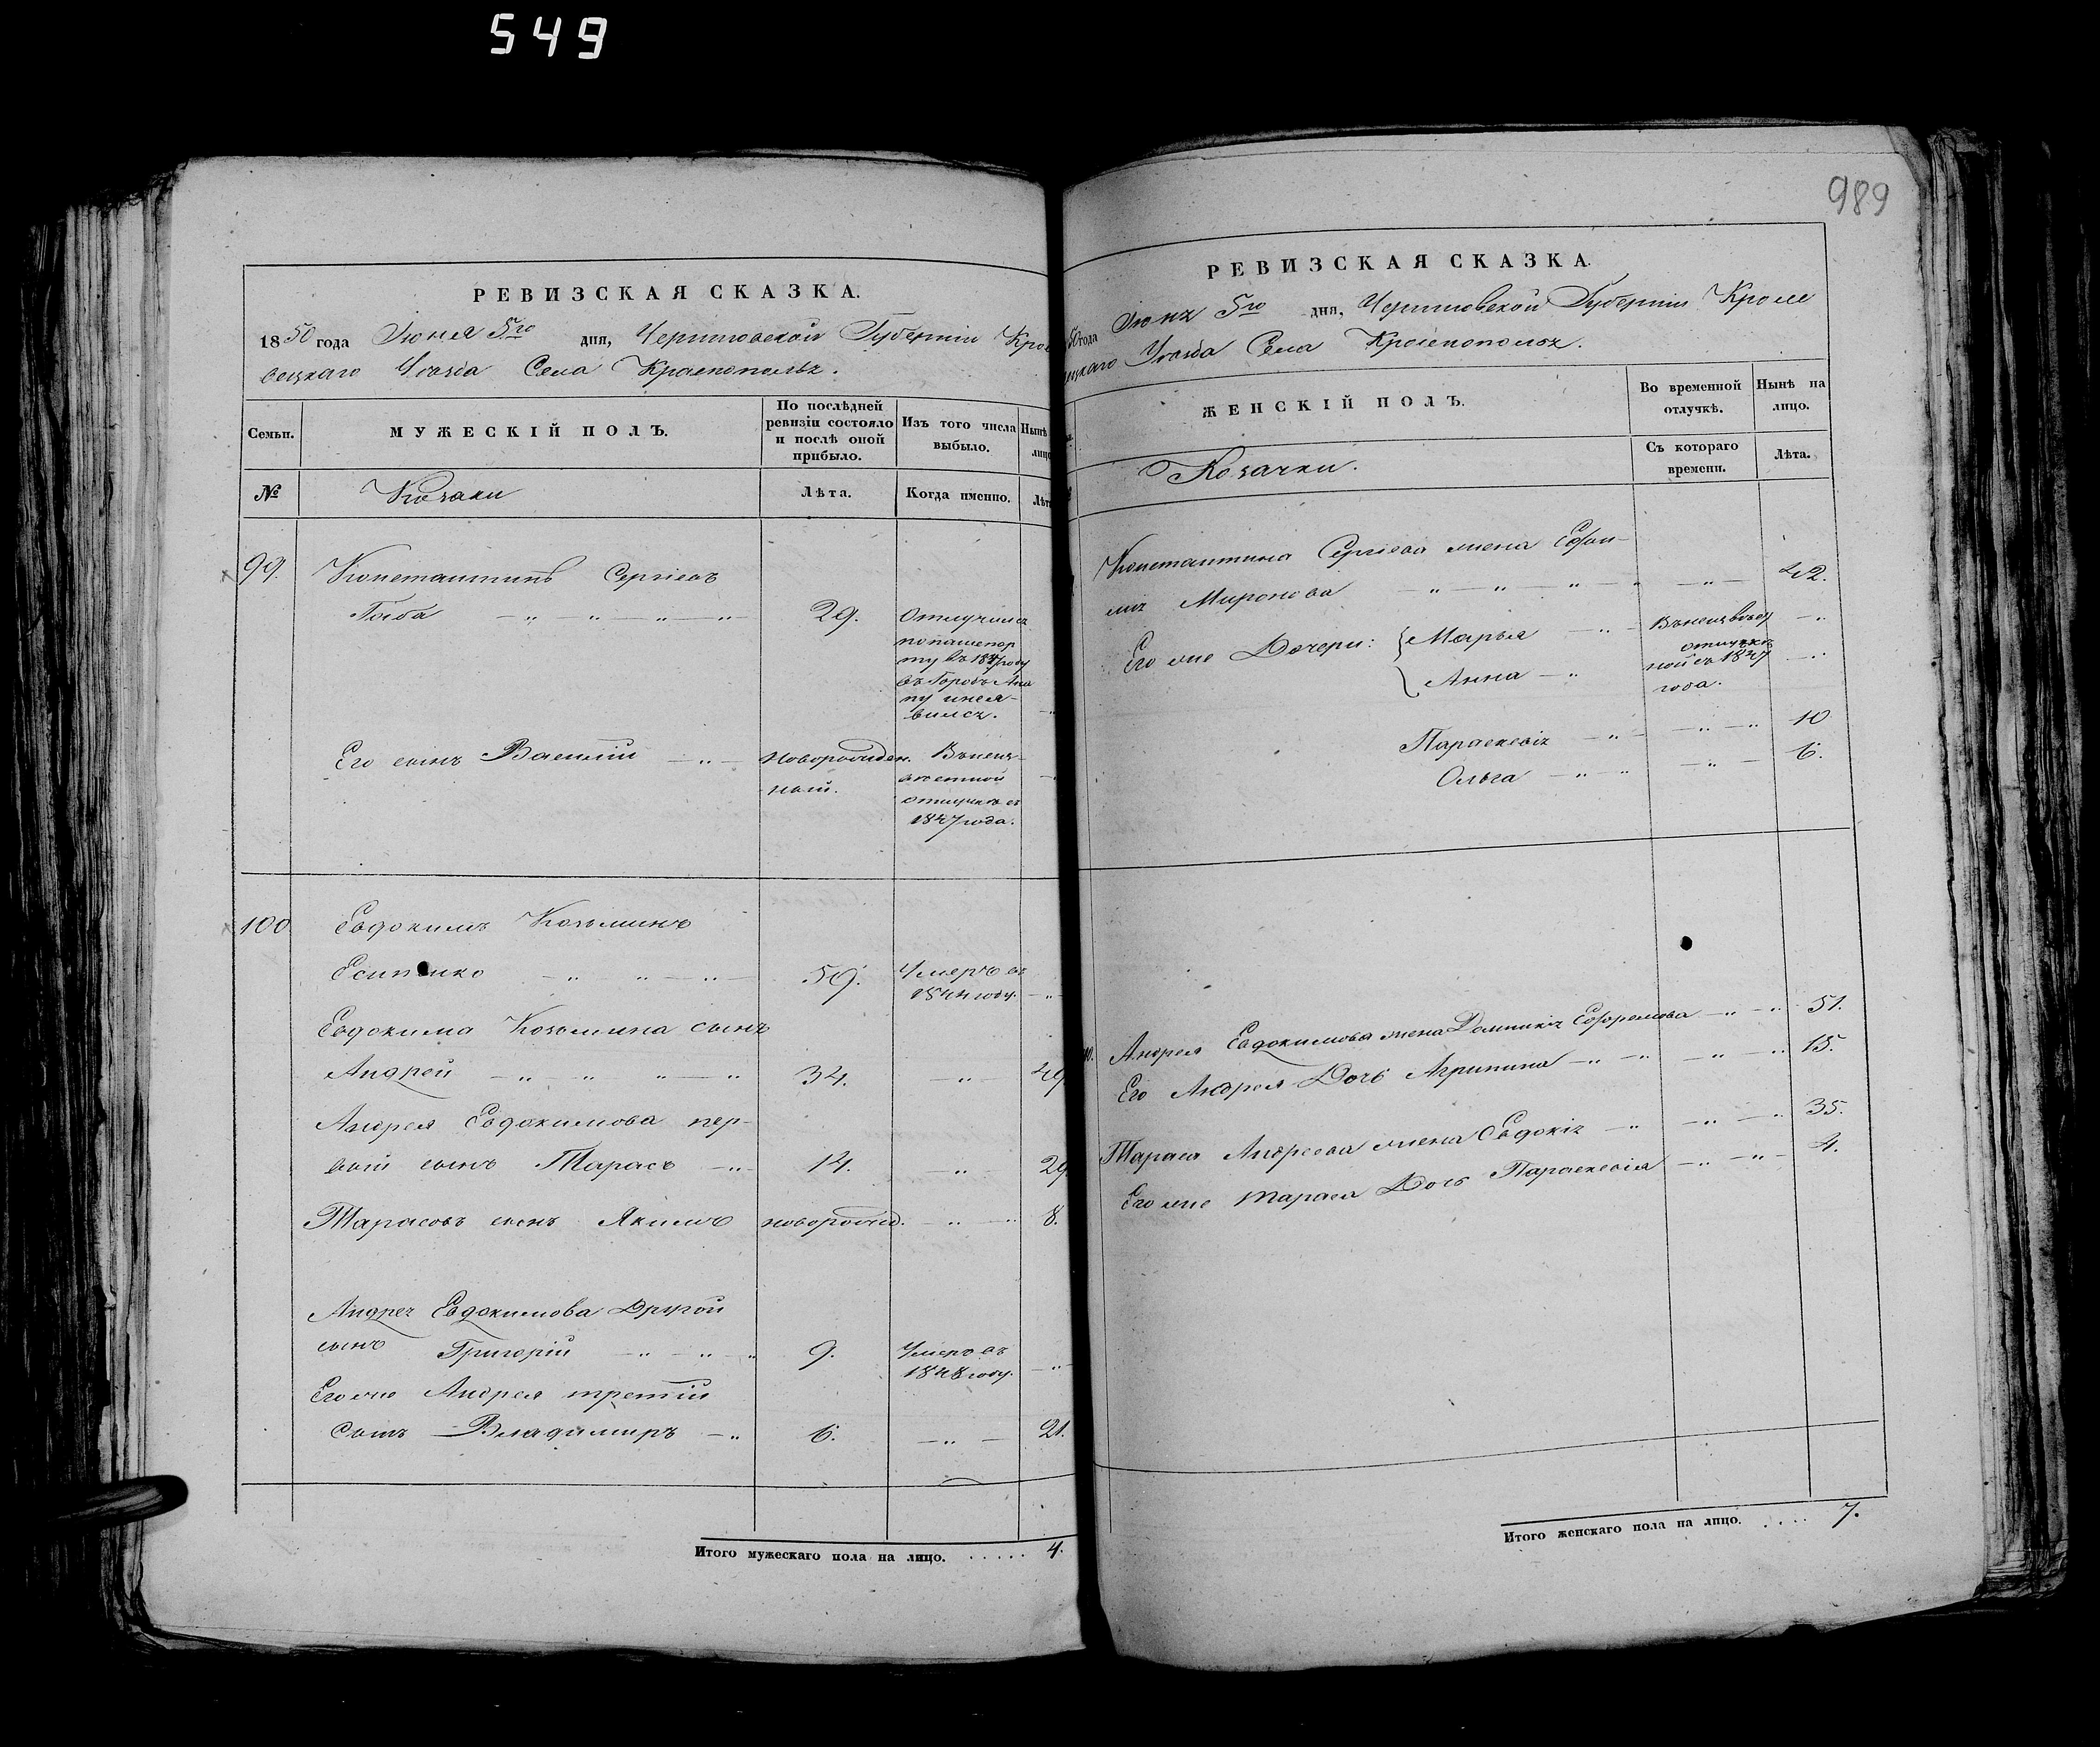 549
РЕВИЗСКАЯ СКАЗКА.
1850 года Июня 5го дня, Черниговской Губернiи Кроле
вецкаго Уѣзда Села Краснополья.
Семьи.
МУЖЕСКІЙ ПОЛЪ.
По послѣдней
ревизіи состояло
и послѣ оной
прибыло.
Изъ того числа
выбыло.
Нынѣ
лицо
№
Козаки
Лѣта.
Когда именно.
Лѣта
99.
Константинъ Сергіевъ
29.
Отлучился
по пашпор
ту въ 1847 году
въ Городъ Ана
пу и не я-
вился.
Его сынъ Василій
новорожден.
ный.
Въ неиз-
вѣстной
отлучкѣ съ
1847 года.
100
Евдокимъ Козьминъ
Есипенко
59.
Умеръ въ
1844 году.
Евдокима Козьмина сынъ
Андрей
34.
49
Андрея Евдокимова пер-
вый сынъ Тарасъ
14.
29
Тарасовъ сынъ Якимъ
новорожд.
8.
Андрея Евдокимова Другой
сынъ Григорій
9.
Умеръ въ
1848 году.
Его же Андрея третій
сынъ Владимиръ
6.
21.
Итого мужескаго пола на лицо. . . . . . 4.
989
РЕВИЗСКАЯ СКАЗКА.
50 года Июня 5го дня, Черниговской Губерніи Кроле
вецкаго Уѣзда Села Краснополья.
ЖЕНСКІЙ ПОЛЪ.
Во временной
отлучкѣ.
Нынѣ на
лицо.
Козачки.
Съ котораго
времени.
Лѣта.
Константина Сергіева жена Ефи-
мія Миронова
42.
Его же Дочери: Марья
Анна
отлучкѣ
съ 1847
года.
Параскевія
10
Ольга
6.
Андрея Евдокимова жена Домникія Ефремова
51.
Его Андрея Дочь Агрипина
15.
Тараса Андреева жена Евдокія
35.
Его же Тараса Дочь Параскевія
4.
Итого женскаго пола на лицо. . . . . 7.